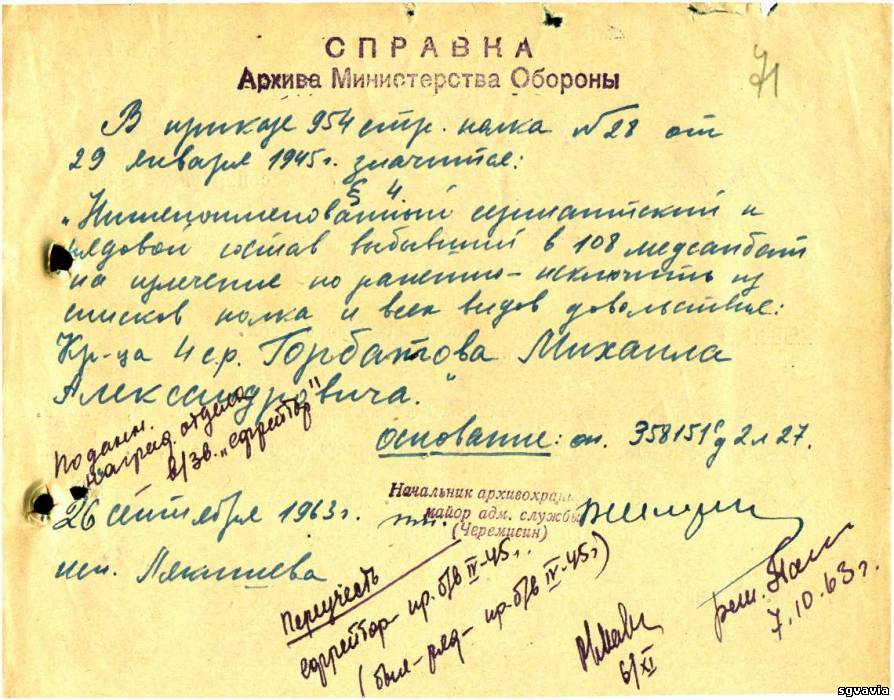 СПРАВКА
Архива Министерства Обороны
71
В приказе 954 стр. полка №28 от
29 января 1945г. значится:
§ 4
„Нижепоименованный сержантский и
рядовой состав выбывший в 108 медсанбат
на излечение по ранению - исключить из
списков полка и всех видов довольствия:
Кр-ца 4 с.р. Горбатова Михаила
Александровича."
Поданн.
наград. отдела
в/зв. „ефрейтор"
основание: оп. 358151с д 2 л 27.
26 сентября 1963г.
Начальник архивохран
майор адм. службы
(Черемисин)
исп. Лякишева
Переучесть
ефрейтор - пр. б/в IV-45г.
(был - ряд - пр. б/в IV-45г)
6/XI
7.10.63г.
sgvavia